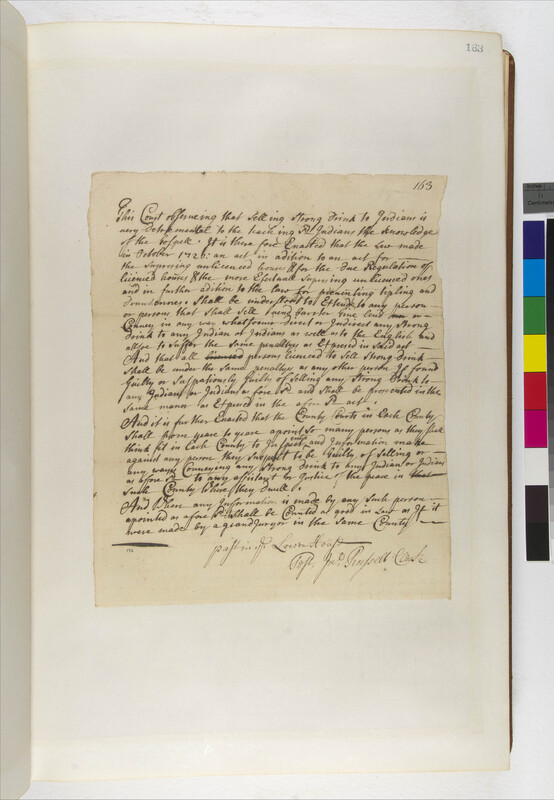 183
163
This Court observeing that Selling Strong Drink to Indians is
very Detremental to the teaching sd Indians the knowledge
of the Gospell. It is there fore Enacted that the Law made
in October 1726: an act in adition to an act for
the Supresing unlicenced houses & for the Due Regulation of
licenced houses & the more Efectuall Supresing unlicenced ones
and in further adition to the law for preventing tipling and
Drunkennes: Shall be understood to Extend to any person
or persons that Shall Sell Lend barter give or
Convey in any way whatsoever direct or Indirect any Strong
Drink to any Indian or Indians as well as to the English and
allso to Sufer the same penaltys as Expresed in Said act
And that all persons licenced to Sell Strong Drink
Shall be under the Same penaltys as any other person If found
Guilty or Suspitiously Guilty of Selling any Strong Drink to
any Indian or Indians as fore sd and Shall be prosecuted in the
Same maner as Expresed in the afore sd act.
And it is further Enacted that the County Courts in Each County
Shall from yeare to yeare apoint So many persons as they Shall
think fit in Each County to Inspect and Information make
against any person they Suspect to be Guilty of Selling or
any ways Conveying any Strong Drink to any Indian or Indians
as afore sd to any assistant or Justice of the peace in
Such County Where they Dwell.
And When any Information is made by any Such person
apointed as afore sd: Shall be Counted as good in Law as If it
were made by a grandjuryor in the Same County
past in ye Lower House
Test. Jno Russell Clerk